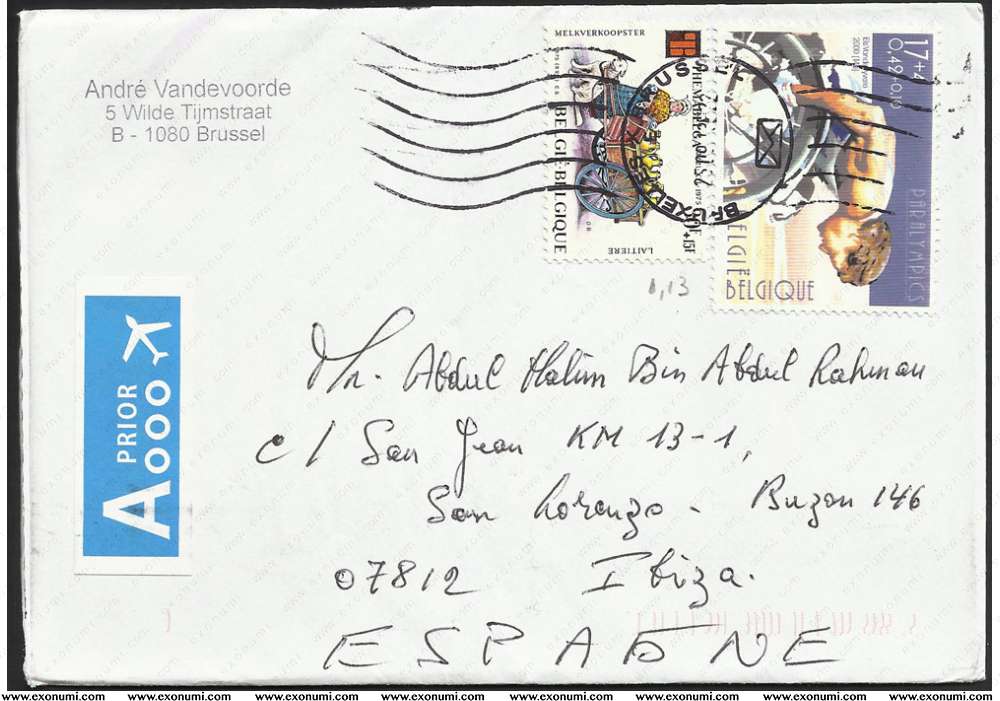 André Vandevoorde
5 Wilde Tijmstraat
B - 1080 Brussel
MELKVERKOOPSTER
BELGIË-BELGIQUE
LAITIERE
+15F
17+4
0,42+0,10
PARALYMPICS
BELGIË
BELGIQUE
BRUXEL
1,13
PRIOR
A
Mr. Abdul Halim Bin Abdul Rahman
c/ San Jean KM 13-1,
San Lorenzo - Buzon 146
07812 Ibiza.
ESPAGNE
www.exonumi.com www.exonumi.com www.exonumi.com www.exonumi.com www.exonumi.com www.exonumi.com www.exonumi.com www.exonumi.com